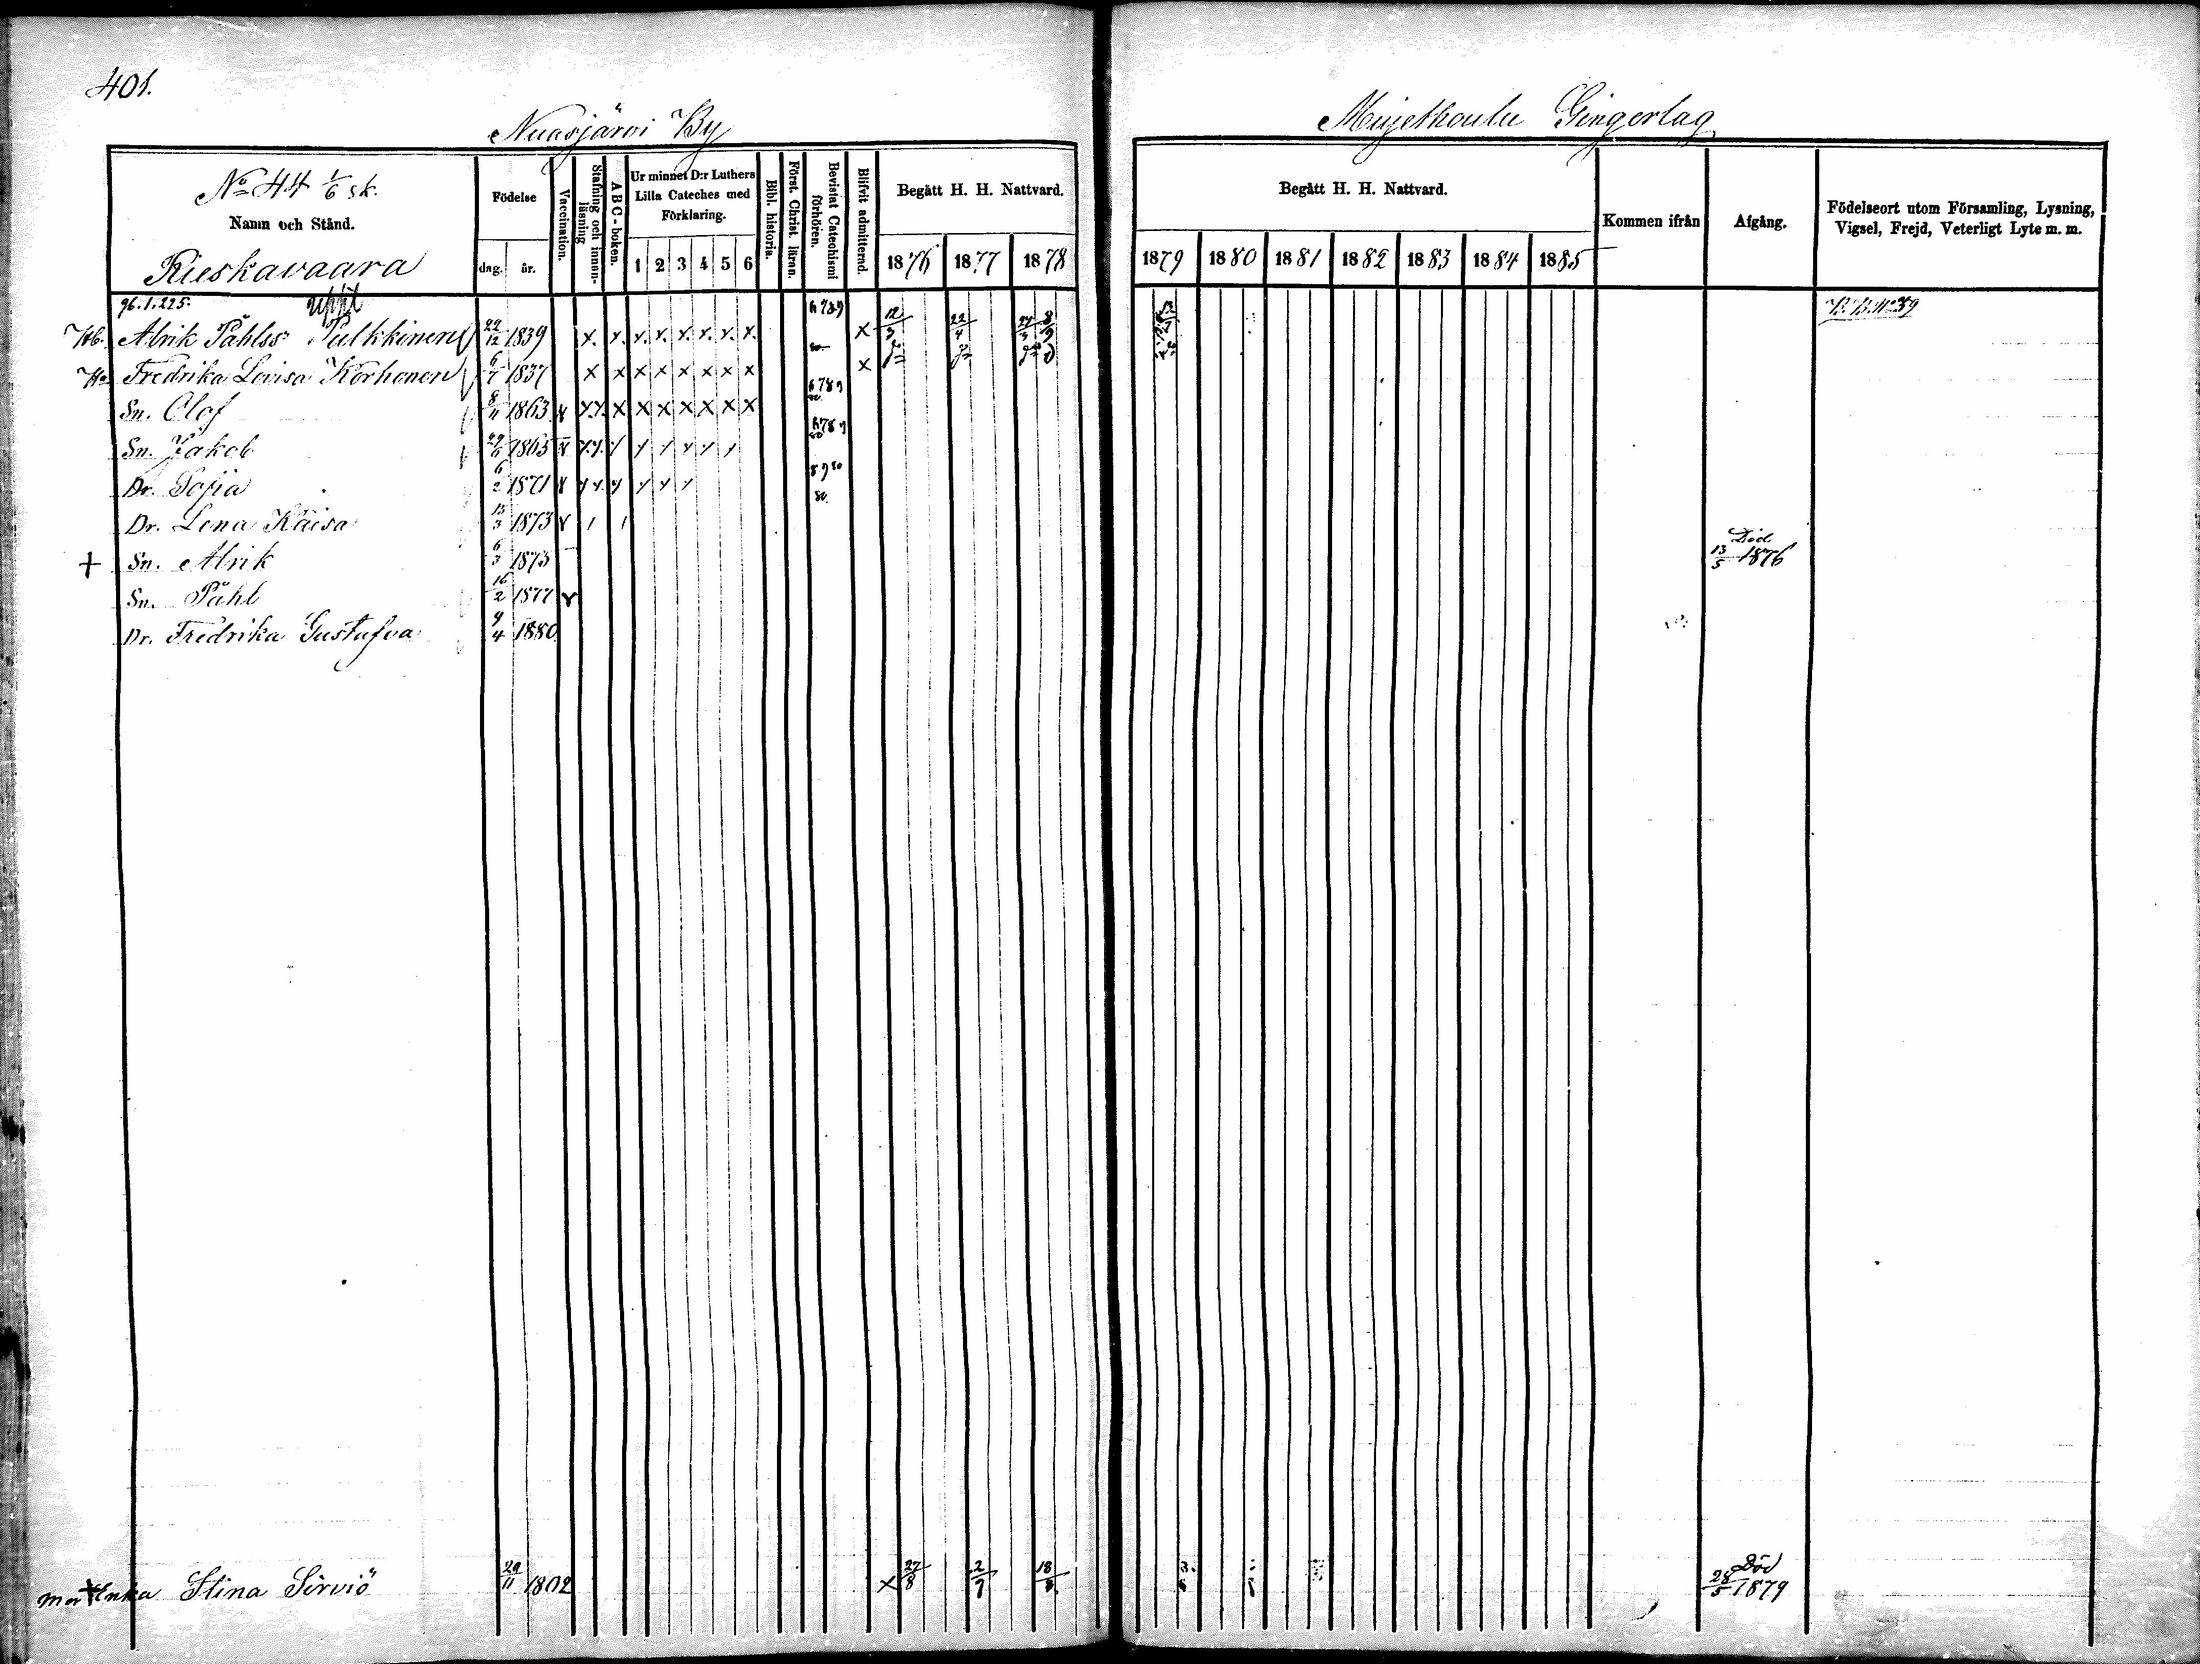 401.
Nuasjärvi By
No 44 1/6 sk.
Namn och Stånd.
Rieskavaara
Födelse
dag. år.
Vaccination.
Stafning och innan-läsning
ABC-boken.
Ur minnet D:r Luthers
Lilla Cateches med
Förklaring.
1 2 3 4 5 6
Bibl. historia.
Först. Christ. läran.
Bevistat Catechismi förhören.
Blifvit admitterad.
Begått H. H. Nattvard.
1876 1877 1878
96.1.225.
Hb. Alrik Påhlss Pulkkinen 22/12 1839 x. x. x. x. x. x. x. x. x 12/3 22/4
Fredrika Lovisa Korhonen 6/7 1837 x x x x x x x x x
Sn. Olof 8/11 1863 x x x x x x x
Sn. Jakob 1865
Dr. Sofia 6/2 1871
Dr. Lena Kaisa 13/3 1873
+ Sn. Alrik 6/3 1875
Sn. Påhl 16/2 1877
Dr. Fredrika Gustafva 9/4 1880
Enka Stina Sirviö 29/11 1802 x 27/8 2/9 18/8
Gingerlag
Begått H. H. Nattvard.
1879 1880 1881 1882 1883 1884 1885
Kommen ifrån
Afgång.
Födelseort utom Församling, Lysning,
Vigsel, Frejd, Veterligt Lyte m. m.
Död
13/5 1876
Död
28/5 1879